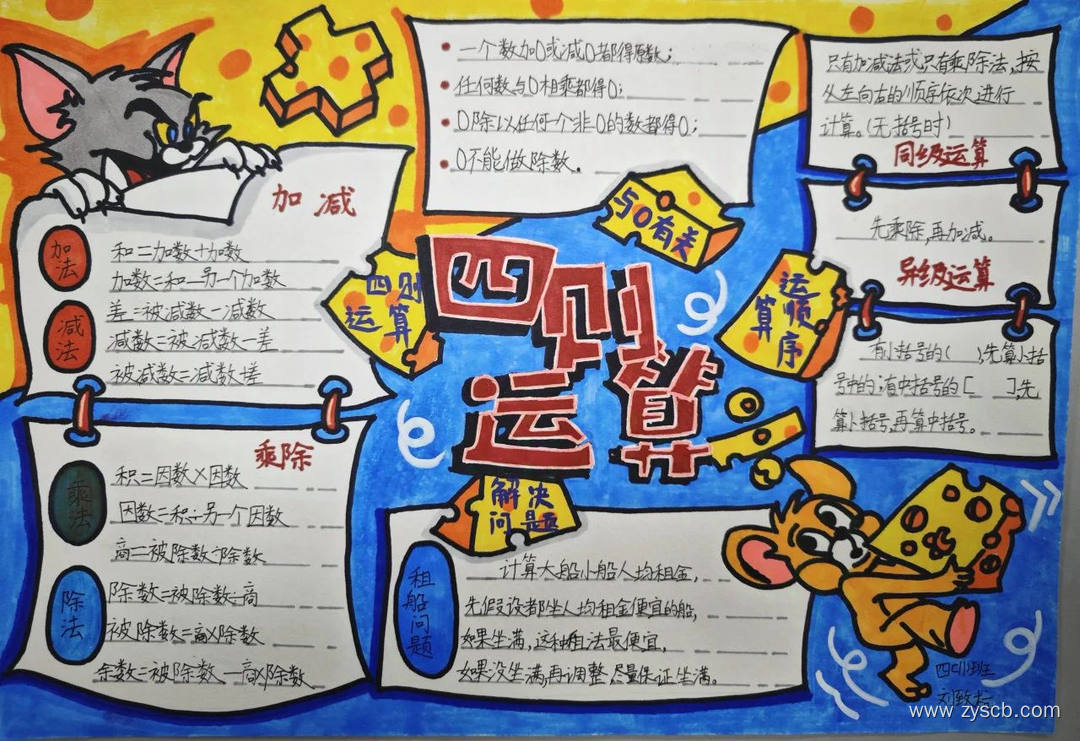 加减
加法
和=加数+加数
加数=和-另一个加数
减法
差=被减数-减数
减数=被减数-差
被减数=减数+差
乘除
乘法
积=因数×因数
因数=积÷另一个因数
商=被除数÷除数
除法
除数=被除数÷商
被除数=商×除数
余数=被除数-商×除数
四则
运算
四则
运算
与0有关
一个数加0或减0都得原数;
任何数与0相乘都得0;
0除以任何一个非0的数都得0;
0不能做除数。
运算
顺序
只有加减法或只有乘除法,按
从左向右的顺序依次进行
计算。(无括号时)
同级运算
先乘除,再加减。
异级运算
有小括号的( ),先算小括
号中的;有中括号的[ ],先
算小括号,再算中括号。
解决
问题
租船问题
计算大船小船人均租金,
先假设都坐人均租金便宜的船,
如果坐满,这种租法最便宜,
如果没坐满,再调整,尽量保证坐满。
四(1)班
刘
www.zyscb.com